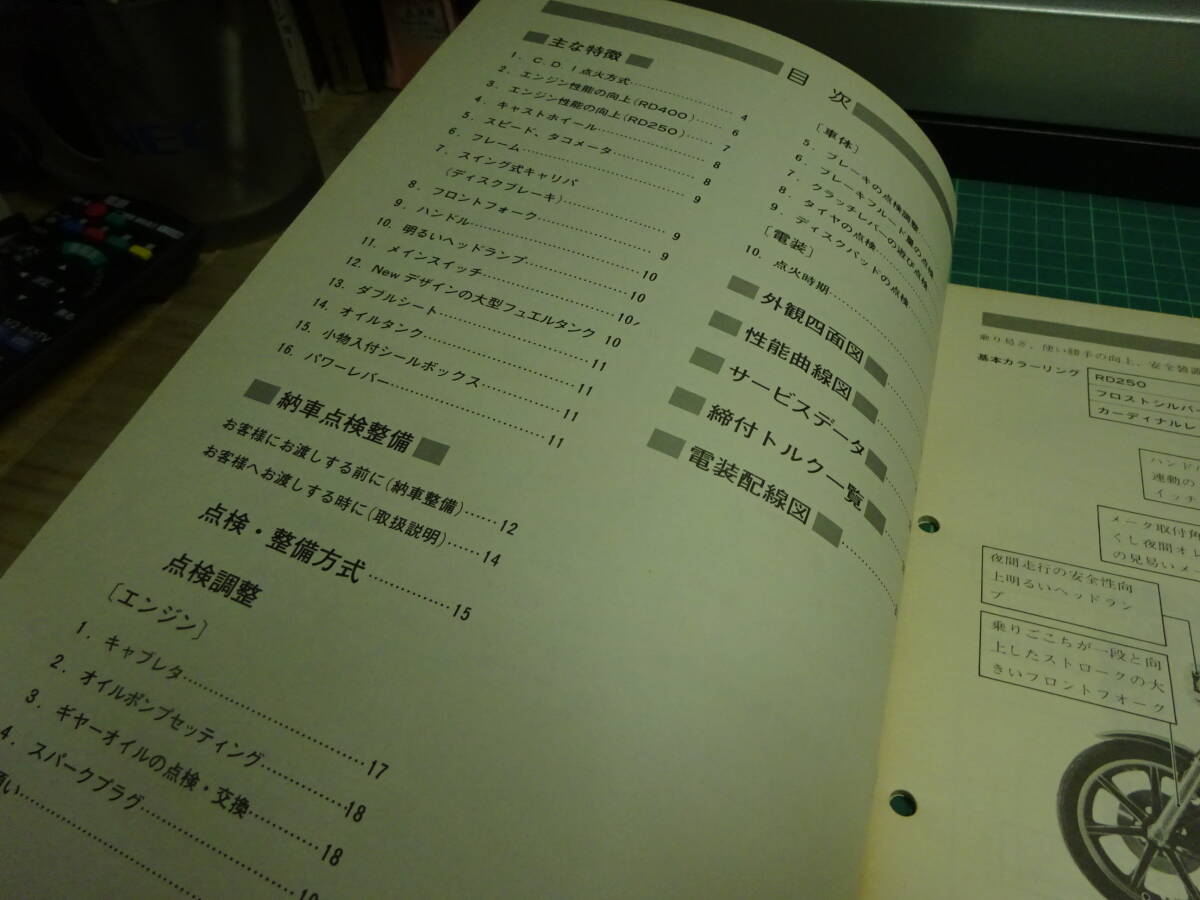 目次
主な特徴
1. CDI点火方式………4
2. エンジン性能の向上(RD400)……6
3. エンジン性能の向上(RD250)……7
4. キャストホイール………8
5. スピード、タコメータ………8
6. フレーム………9
7. スイング式キャリパ
(ディスクブレーキ)………9
8. フロントフォーク………9
9. ハンドル………10
10. 明るいヘッドランプ………10
11. メインスイッチ………10
12. Newデザインの大型フュエルタンク 10
13. ダブルシート………11
14. オイルタンク………11
15. 小物入付シールボックス………11
16. パワーレバー………11
納車点検整備
お客様にお渡しする前に(納車整備)……12
お客様へお渡しする時に(取扱説明)……14
点検・整備方式………15
点検調整
〔エンジン〕
1. キャブレタ………17
2. オイルポンプセッティング………18
3. ギヤーオイルの点検・交換………18
4. スパークプラグ………
〔車体〕
5. ブレーキの点検調整……
6. ブレーキフルード量の点検
7. クラッチレバーの遊び点検
8. タイヤの点検………
9. ディスクパッドの点検
〔電装〕
10. 点火時期………
外観四面図………
性能曲線図………
サービスデータ………
締付トルク一覧………
電装配線図………
乗り易さ、使い勝手の向上、安全装
基本カラーリング
RD250
フロストシルバ
カーディナルレ
ハンド
連動の
イッチ
メータ取付角
くし夜間オレ
の見易いメー
夜間走行の安全性向
上明るいヘッドラン
プ
乗りごこちが一段と向
上したストロークの大
きいフロントフォーク